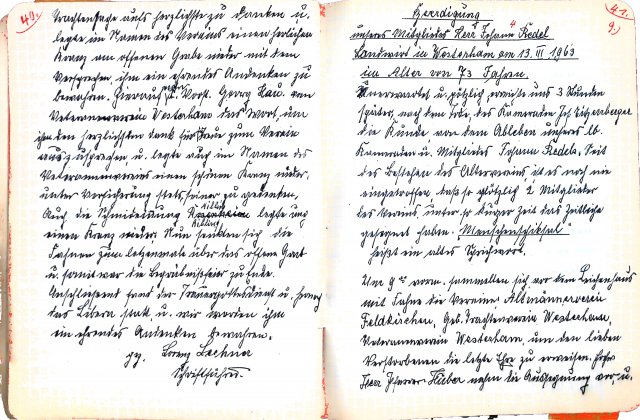 40.
Trachtensache aufs herzlichste zu danken u.
legte im Namen des Vereins einen herrlichen
Kranz am offenen Grabe nieder mit dem
Versprechen, ihm ein ehrendes Andenken zu
bewahren. Hierauf Vorst. Georg von
Veteranenverein Westerham das Wort, um
ihm den herzlichsten Dank für Treue zum Verein
auszusprechen u. legte auch im Namen des
Veteranenvereins einen schönen Kranz nieder
unter Versicherung stets seiner zu gedenken.
Auch die Schmiedeinnung legte
einen Kranz nieder. Nun senkten sich die
Fahnen zum letztenmale über das offene Grab
u. somit war die Begräbnisfeier zu Ende.
Anschließend fand der Trauergottesdienst u.
das Libera statt, u. wir werden ihm
ein ehrendes Andenken bewahren.
gz. Lorenz Lechner
Schriftführer.
41.
Beerdigung
unseres Mitgliedes Herr Johann Redel
Landwirt in Westerham am 13. III 1963
im Alter von 73 Jahren.
Unerwartet u. plötzlich, erreichte uns 3 Stunden
später, nach dem Tode, des Kameraden Jos.
die Kunde von dem Ableben unseres lb.
Kameraden u. Mitgliedes Johann Redels. Seit
des Bestehen des Altervereins, ist es noch nie
eingetroffen, daß so plötzlich 2 Mitglieder
des Vereins, unter so kurzer Zeit das Zeitliche
gesegnet haben. "Menschenschiksal"
heißt ein altes Sprichwort.
Um 9 Uhr vorm. sammelten sich vor dem Leichenhaus
mit Fahne die Vereine Altmännerverein
Feldkirchen, Geb. Trachtenverein Westerham,
Veteranenverein Westerham, um den lieben
Verstorbenen die letzte Ehre zu erweisen.
Herr Pfarrer Huber nahm die Aussegnung vor, u.